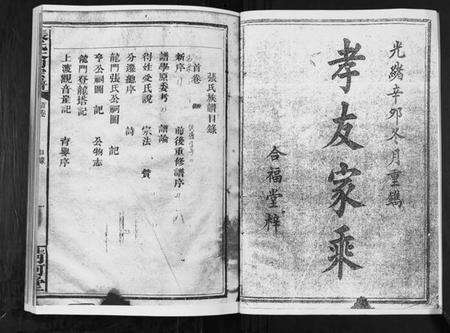 光緒辛卯冬月重鐫
孝友家乘
合福堂梓
張氏族譜目錄
首卷
新序 前後重修譜序
譜學原委考 譜論
得姓受氏說 宗法 贊
分遷總序 詩
龍門張氏公祠圖 記
亨公祠圖 公物志
龍門登龍塔記
上渡觀音堂記 育嬰序
首卷
目錄